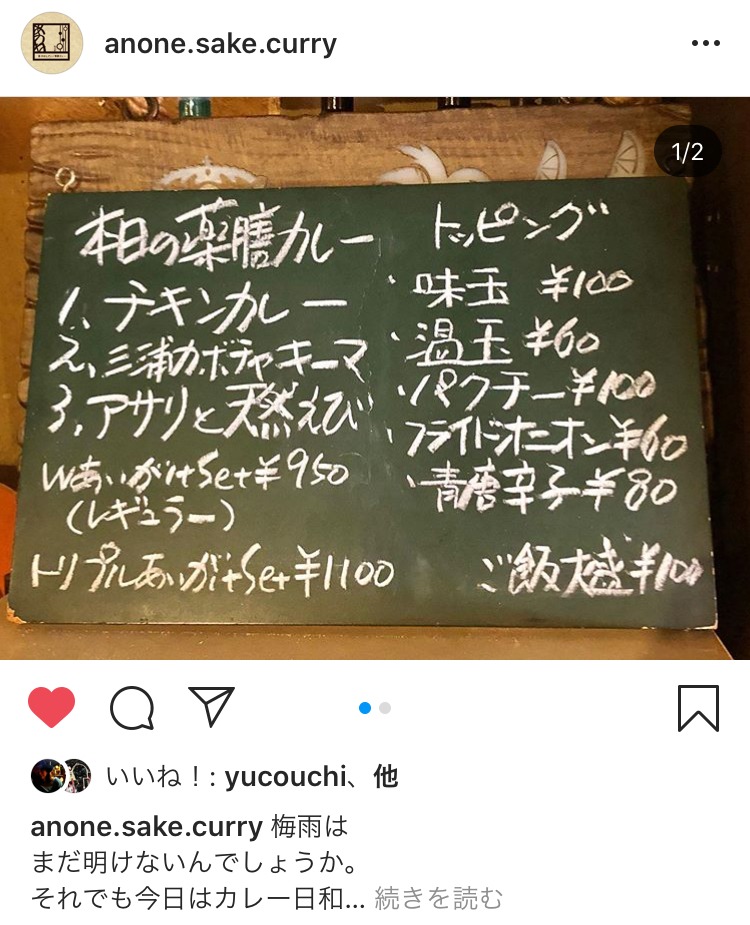 anone.sake.curry
1/2
本日の薬膳カレー
1、チキンカレー
2、三浦カボチャキーマ
3、アサリと天然えび
Wあいがけset¥950
(レギュラー)
トリプルあいがけset¥1100
トッピング
・味玉 ¥100
・温玉 ¥60
・パクチー¥100
・フライドオニオン¥60
・青唐辛子¥80
ご飯大盛¥100
いいね！: yucouchi、他
anone.sake.curry 梅雨は
まだ明けないんでしょうか。
それでも今日はカレー日和... 続きを読む